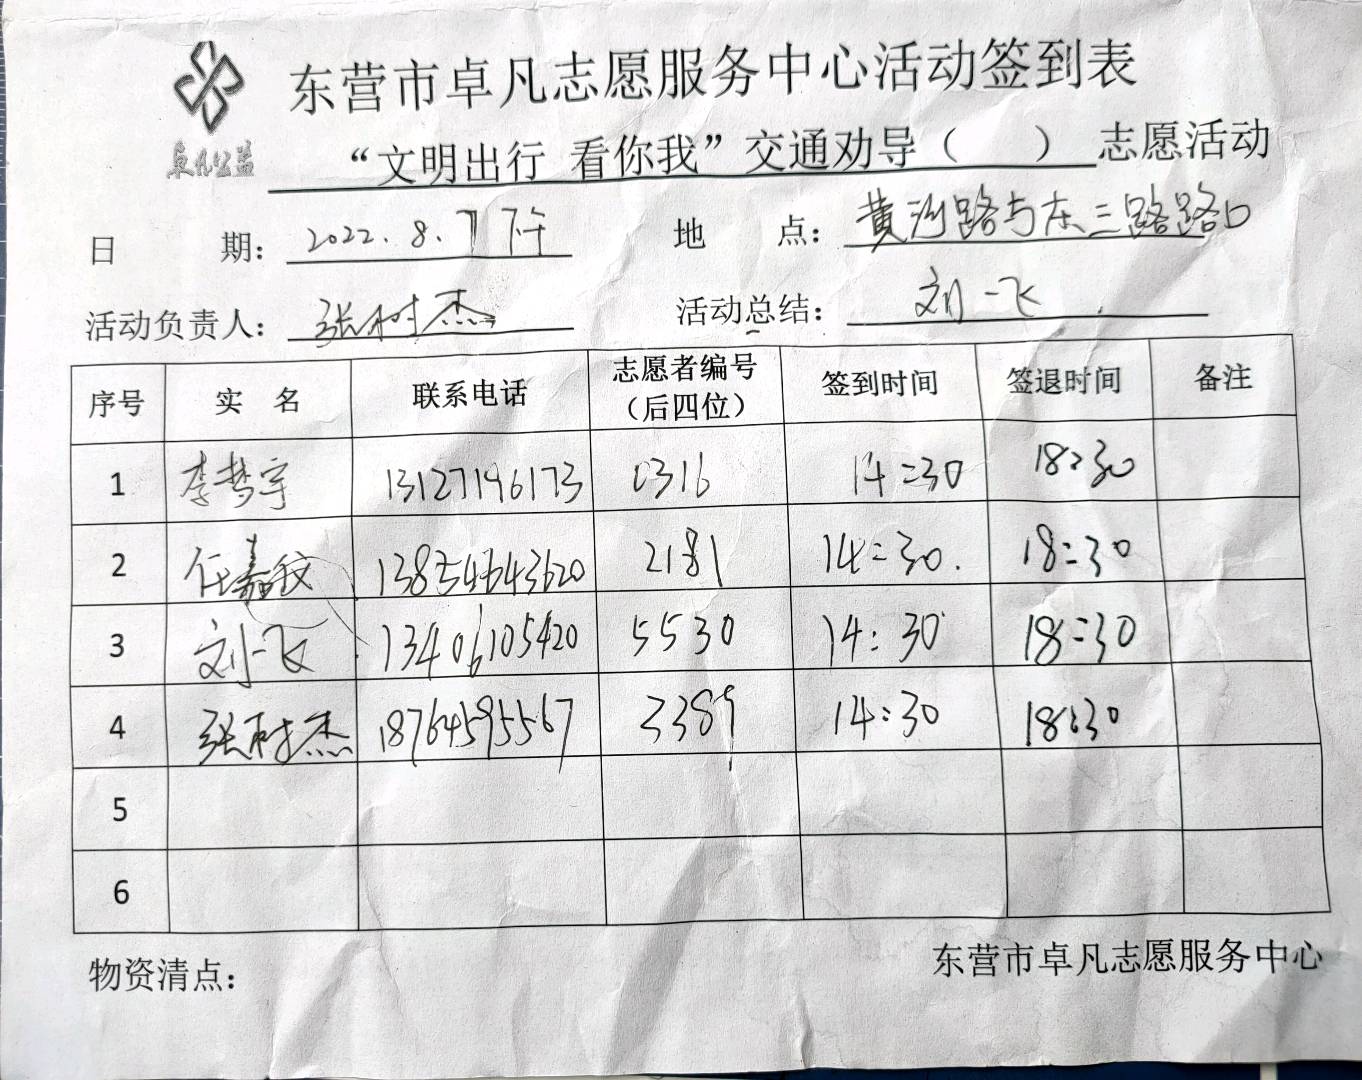 东营市卓凡志愿服务中心活动签到表
卓凡公益
“文明出行 看你我”交通劝导（ ）志愿活动
日 期：2022.8.7下午 地 点：黄河路与东三路路口
活动负责人：张树杰 活动总结：刘一飞
序号 实 名 联系电话 志愿者编号（后四位） 签到时间 签退时间 备注
1 李梦宇 13127196173 0316 14:30 18:30
2 任嘉 13854643620 2181 14:30. 18:30
3 刘一飞 13406105420 5530 14:30 18:30
4 张树杰 18764595567 3389 14:30 18:30
5
6
物资清点： 东营市卓凡志愿服务中心